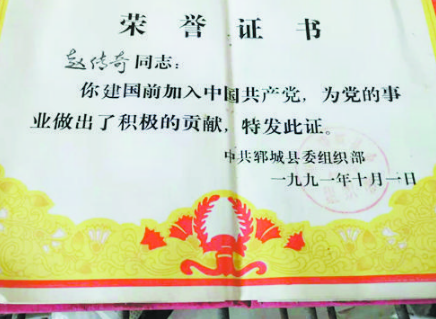 荣誉证书
赵传奇同志:
你建国前加入中国共产党，为党的事
业做出了积极的贡献，特发此证。
中共郓城县委组织部
一九九一年十月一日